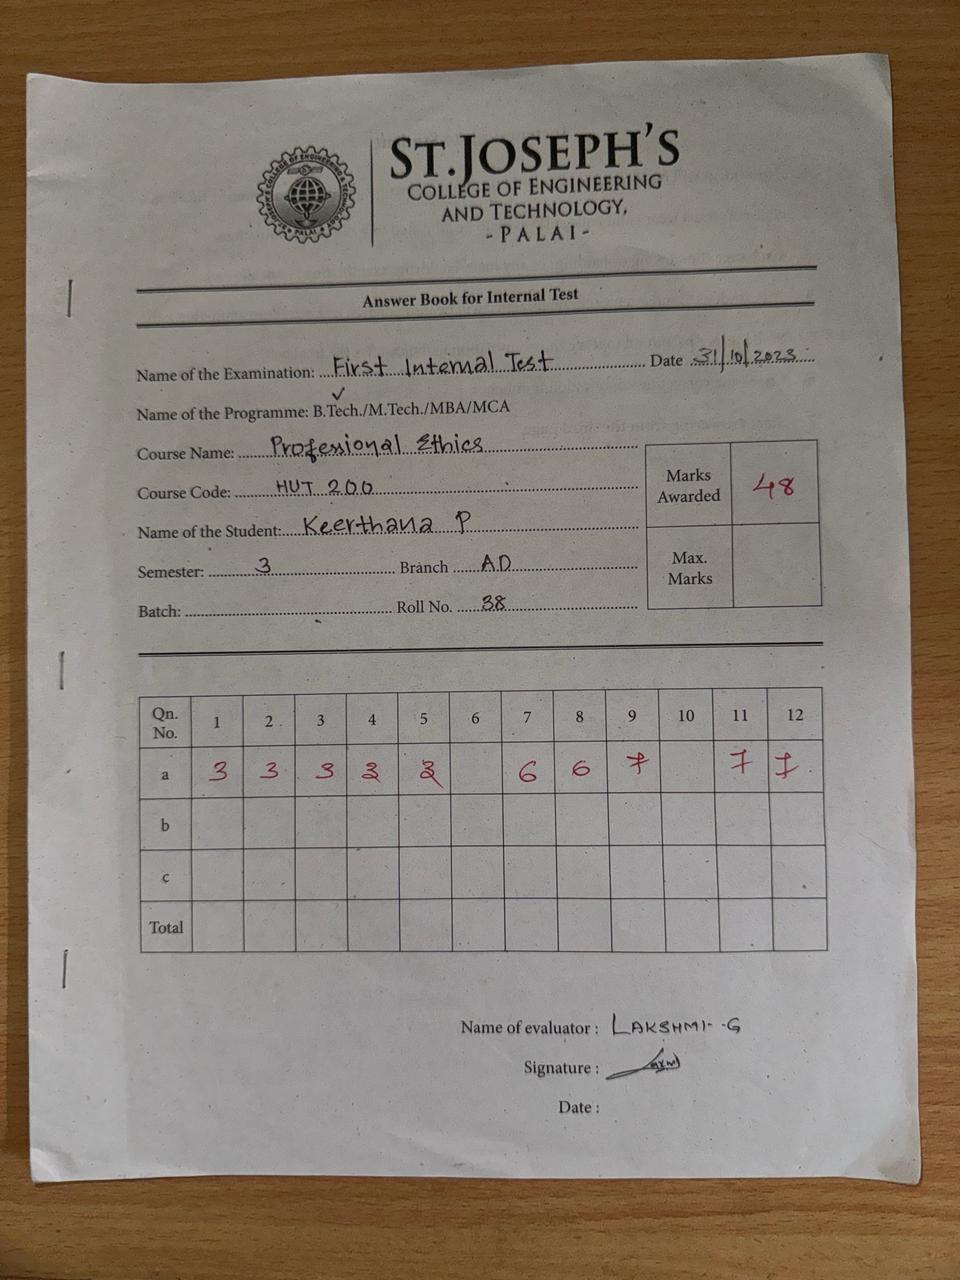 ST.JOSEPH'S
COLLEGE OF ENGINEERING
AND TECHNOLOGY,
- PALAI -
Answer Book for Internal Test
Name of the Examination: First Internal Test Date 31/10/2023
Name of the Programme: B.Tech./M.Tech./MBA/MCA
Course Name: Professional Ethics
Course Code: HUT 200
Marks Awarded 48
Name of the Student: Keerthana P
Semester: 3 Branch AD
Max. Marks
Batch: Roll No. 38
Qn. No. 1 2 3 4 5 6 7 8 9 10 11 12
a 3 3 3 3 3 6 6 7 7 7
b
c
Total
Name of evaluator : LAKSHMI G
Signature :
Date :